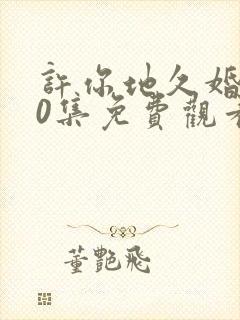 許你地久婚
0集免費觀看
董艷飛